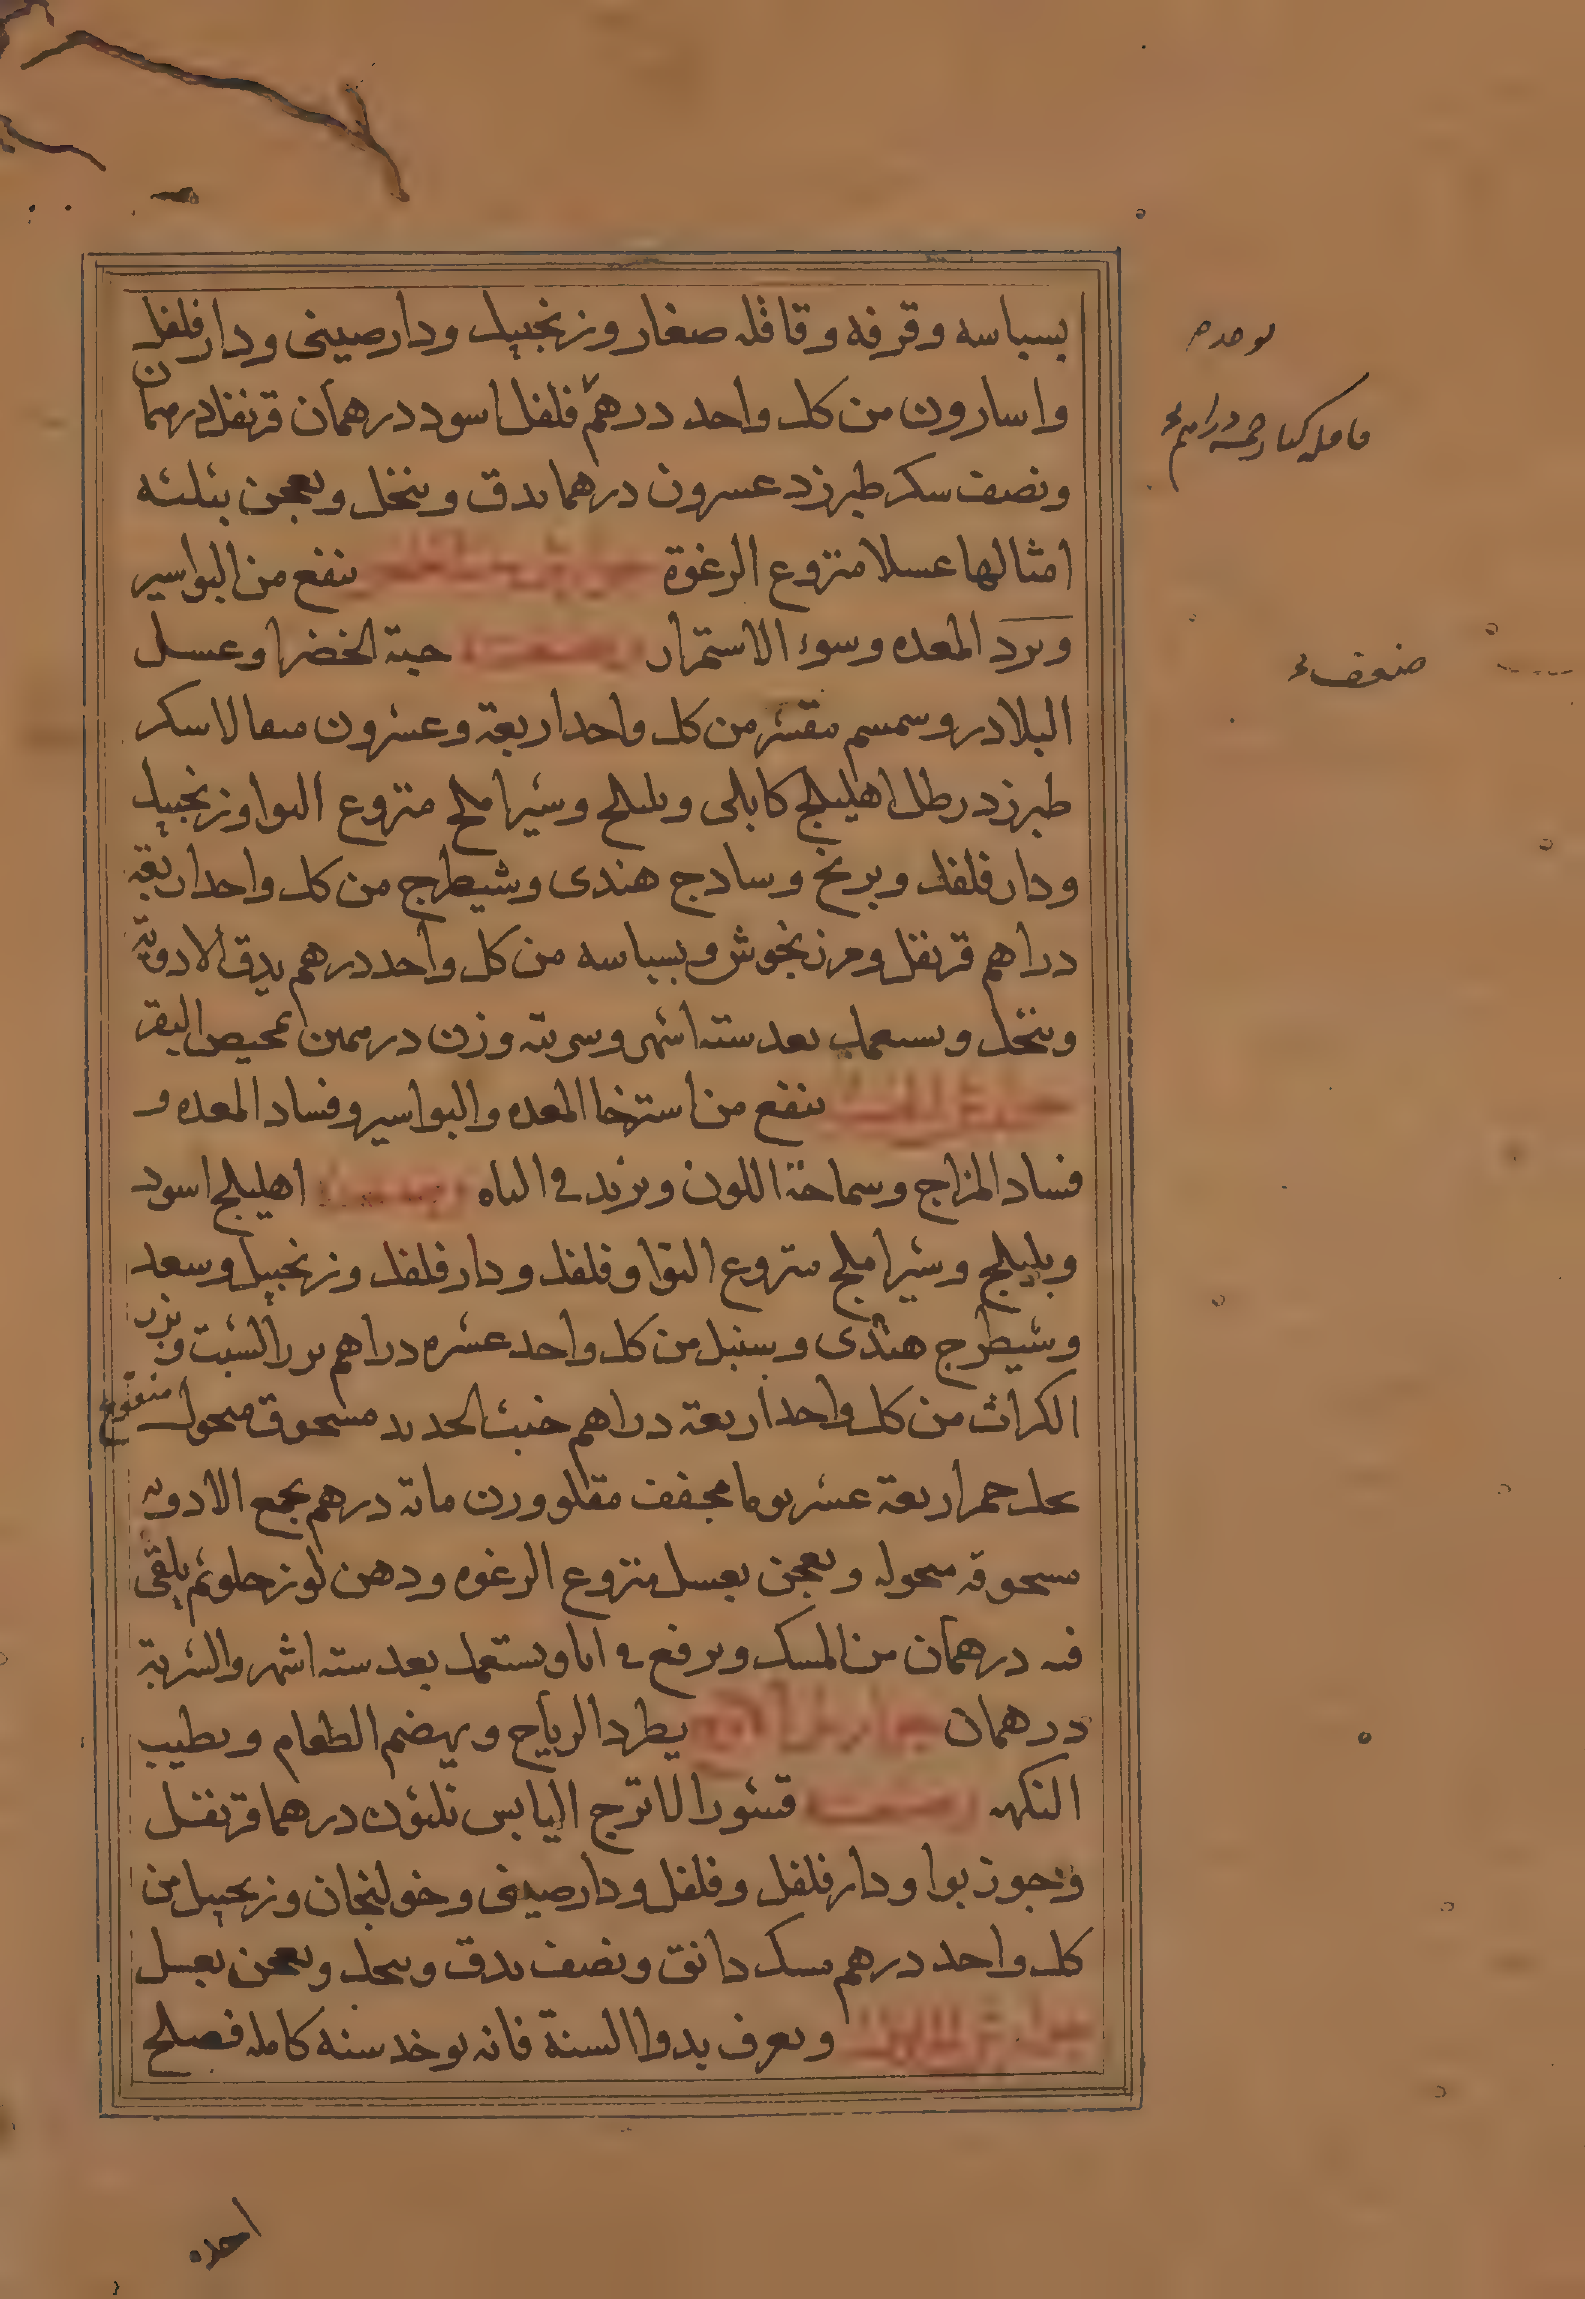 بسباسه وقرفه وقاقله صغار وزنجبيل ودارصينى ودارفلفل
واسارون من كل واحد درهم فلفل اسود درهمان قرنفل درهمان
ونصف سكر طبرزد عسرون درهما يدق وينخل ويعجن بثلثه
امثالها عسلا منزوع الرغوة ينفع من البواسير
وبرد المعده وسوء الاستمرار حبة الخضرا وعسل
البلادر وسمسم مقشر من كل واحد اربعة وعشرون مثقالا سكر
طبرزد رطل اهليلج كابلى وبليلج وشيراملج منزوع النوا وزنجبيل
ودارفلفل وبرنج وسادج هندى وشيطرج من كل واحد اربعه
دراهم قرنفل ومرزنجوش وبسباسه من كل واحد درهم يدق الادوية
وينخل ويستعمل بعد سته اشهر وشربته وزن درهمين بمخيص البقر
ينفع من استرخا المعده والبواسير وفساد المعده و
فساد المزاج وسماجة اللون ويزيد فى الباه اهليلج اسود
وبليلج وشيراملج منزوع النوا وفلفل ودارفلفل وزنجبيل وسعد
وشيطرج هندى وسنبل من كل واحد عشره دراهم بزر الشبت وبزر
الكراث من كل واحد اربعة دراهم خبث الحديد مسحوق منخول منقوع
بخل خمر اربعة عشر يوما مجفف مقلو وزن مائة درهم يجمع الادويه
مسحوقه منخوله ويعجن بعسل منزوع الرغوه ودهن لوز حلو ثم يلقى
فيه درهمان من المسك ويرفع فى انا ويستعمل بعد سته اشهر والشربة
درهمان جوارش الاترج يطرد الرياح ويهضم الطعام ويطيب
النكهه قشور الاترج اليابس ثلثون درهما قرنفل
وجوزبوا ودارفلفل وفلفل ودارصينى وخولنجان وزنجبيل من
كل واحد درهم مسك دانق ونصف يدق وينخل ويعجن بعسل
ويعرف بدوا السنة فانه يوخذ سنه كامله فيصلح
قاقله كبار خمسه دراهم
ضعف